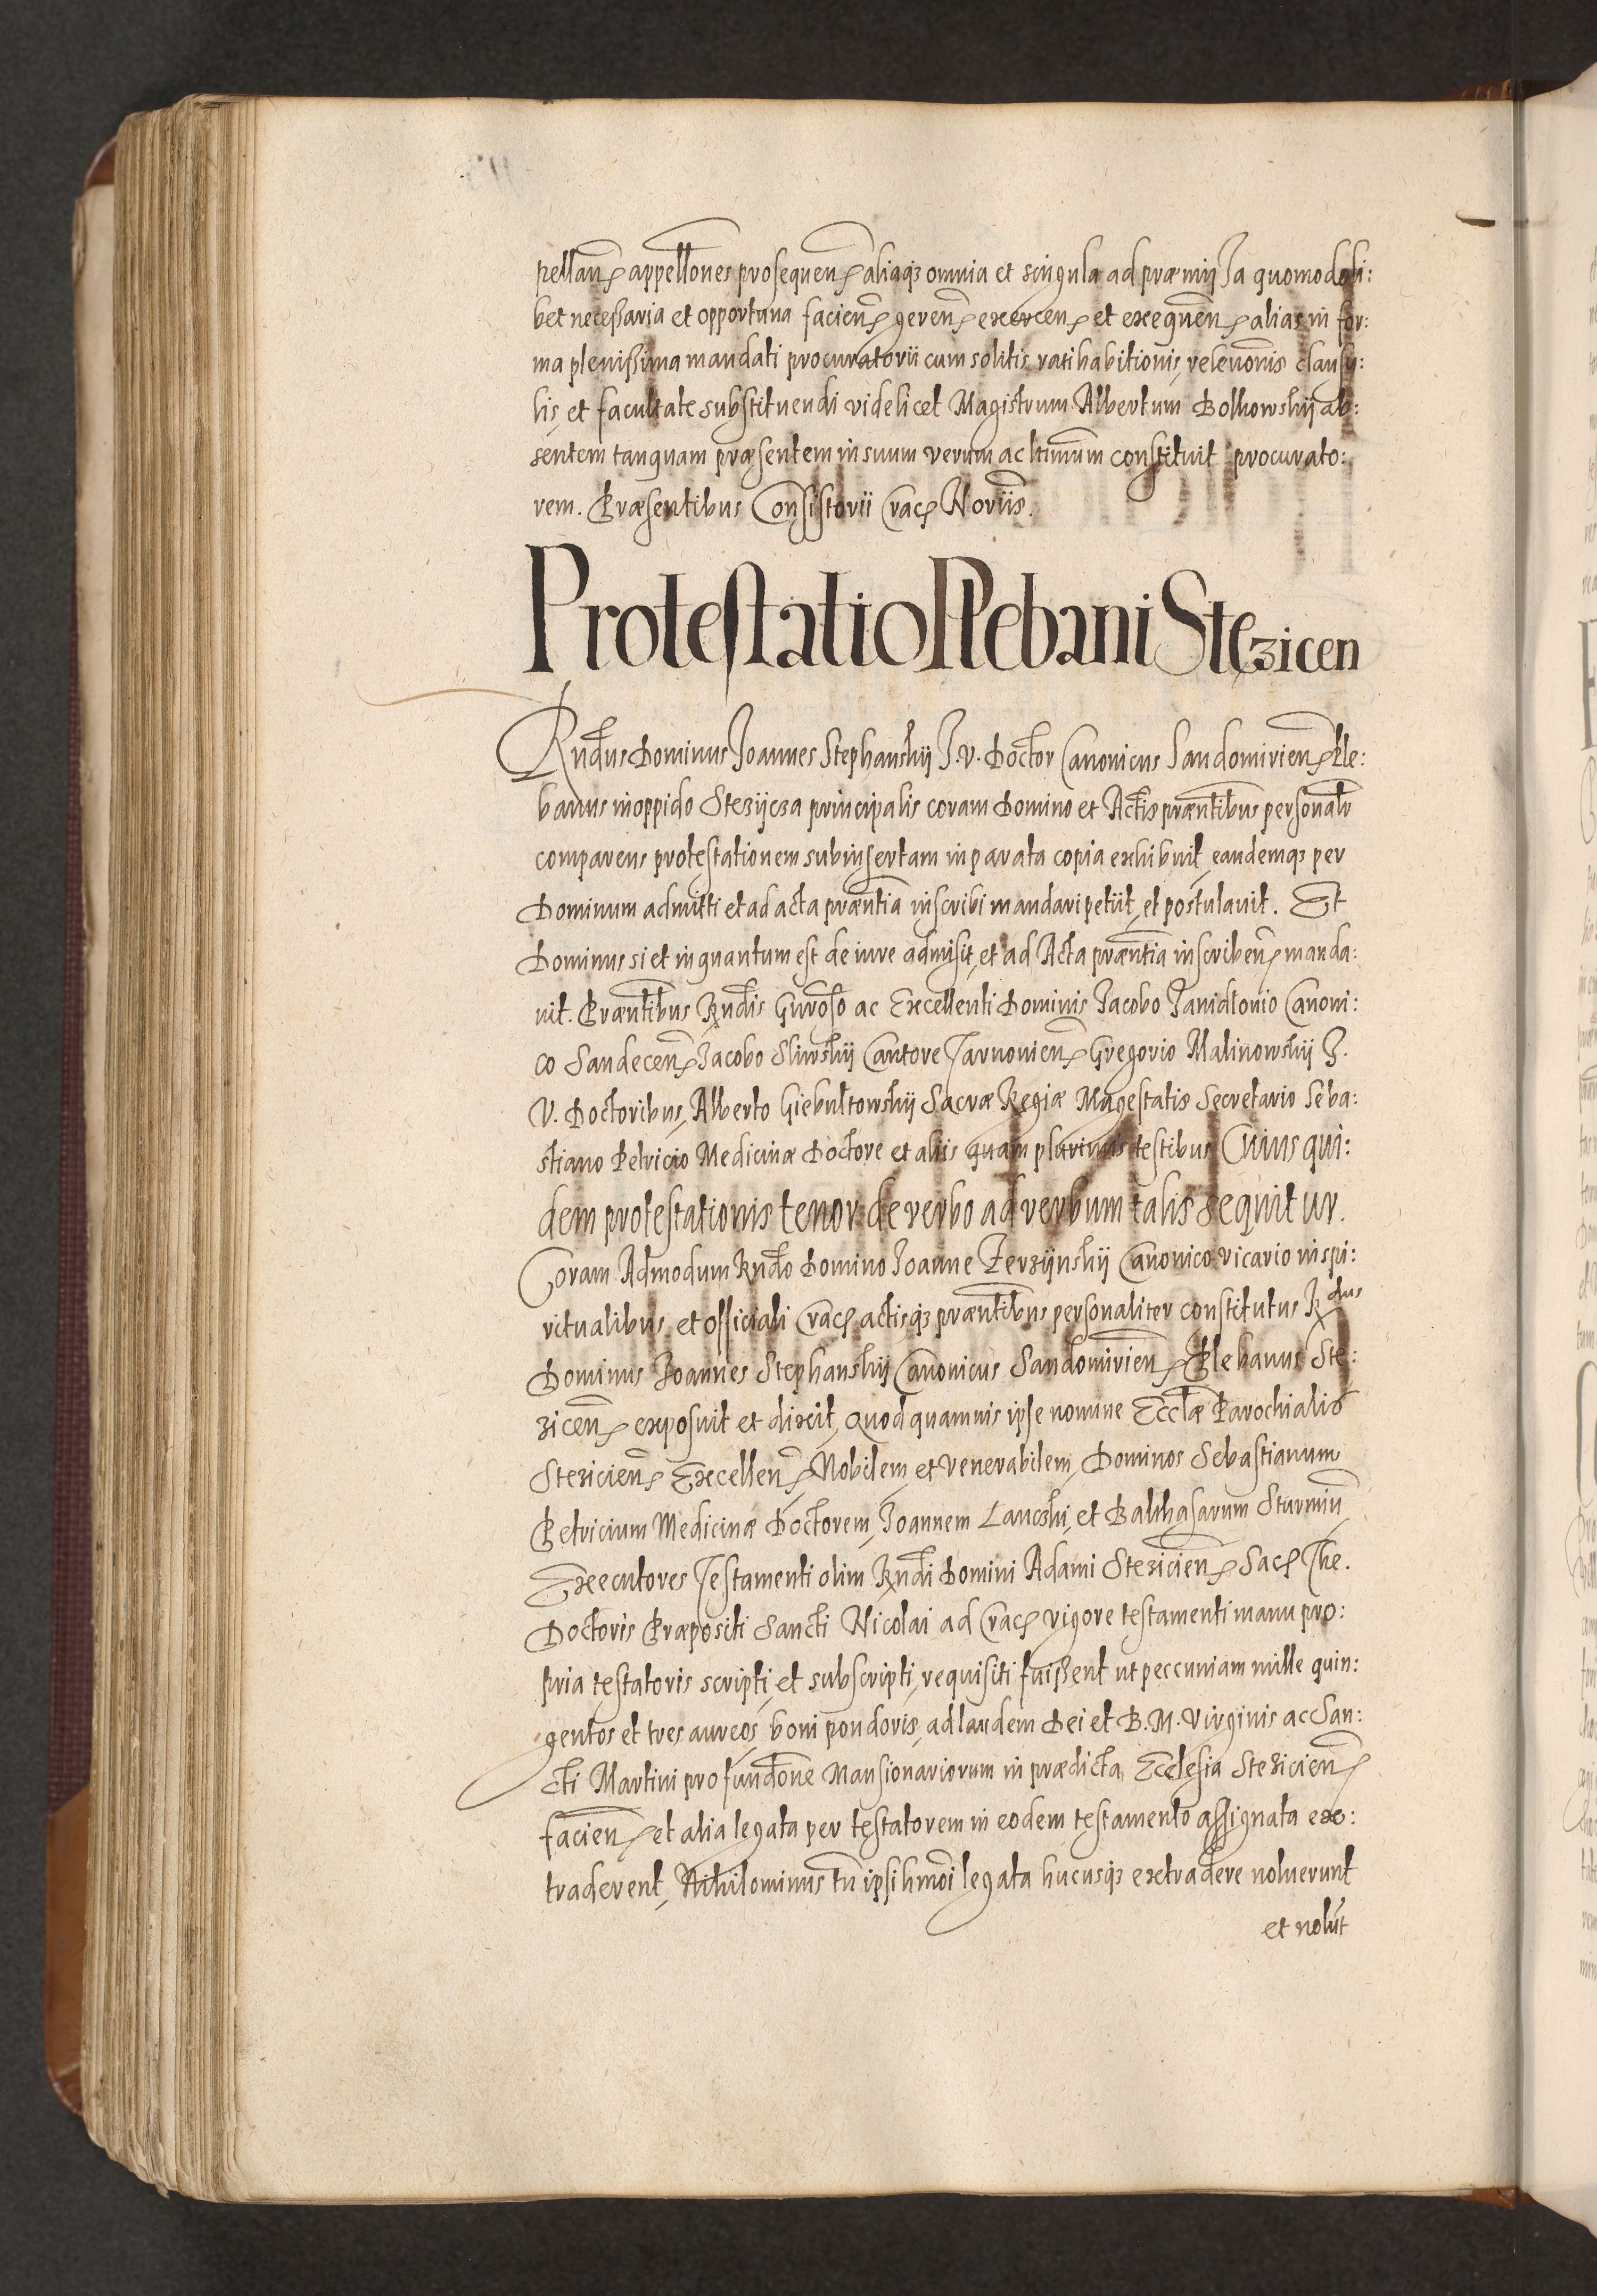 pellan̄ appell̄ones prosequen̄ aliaq₃ omnia et singula ad præmissa quomodoli:
bet necessaria et opportuna facien̄ geren̄ exercen̄ et exequen̄ alias in for:
ma plenissima mandati procuratorii cum solitis, ratihabitionis, relevōnis clausu:
lis, et facultate substituendi videlicet Magistrum Albertum Bolkowskij ab:
sentem tanquam præsentem in suum verum ac l̄timum constituit procurato:
rem. Præsentibus Consistorii Crac̨ Nor̄iis.
Protestatio Plebani Stęzicen
Rnd̄us Dominus Joannes Stephanskij J. V. Doctor Canonicus Sandomirien̄ Ple:
banus in oppido Stezijcza principalis coram Domino et Actis præn̄tibus personalr̄
comparens protestationem subinsertam in parata copia exhibuit, eandemq₃ per
Dominum admitti et ad acta præn̄tia inscribi mandari petiit, et postulavit. Et
Dominus si et in quantum est de iure admisit, et ad Acta præn̄tia inscriben̄ manda:
uit. Præn̄tibus Rnd̄is Gn̄roso ac Excellenti Dominis Jacobo Janidlonio Canoni:
co Sandecen̄ Jacobo Sliwskij Cantore Tarnouien̄ Gregorio Malinowskij J.
V. Doctoribus, Alberto Giebultowskij Sacræ Regiæ Magestatis Secretario Seba:
stiano Petricio Medicinæ Doctore et aliis quam plurimis testibus Cuius qui:
dem protestationis tenor de verbo ad verbum talis sequitur.
Coram Admodum Rnd̄o Domino Joanne Zerzijnskij Canonico vicario in spi:
ritualibus, et officiali Crac̨ actisq₃ præn̄tibus personaliter constitutus Rdus
Dominus Joannes Stephanskij Canonicus Sandomirien̄ Plebanus Ste:
zicen̄ exposuit et dixit, Quod quamuis ipse nomine Eccl̄æ Parochialis
Stezicien̄ Excellen̄ Nobilem et Venerabilem Dominos Sebastianum
Petricium Medicinæ Doctorem, Joannem Lanczki, et Balthasarum Sturmiū
Executores Testamenti olim Rnd̄i Domini Adami Stezicien̄ Sac̨ The.
Doctoris Præpositi Sancti Nicolai ad Crac̨ vigore testamenti manu pro:
pria testatoris scripti, et subscripti, requisiti fuissent ut peccuniam mille quin:
gentos et tres aureos, boni pondoris, ad laudem Dei et B. M. Virginis ac San:
cti Martini pro fundōne Mansionariorum in prædicta Ecclesia Stezicien̄
facien̄ et alia legata per testatorem in eodem testamento assignata ex:
traderent, Nihilominus tn̄ ipsi hm̄oi legata hucusq₃ extradere noluerunt
et nolūt